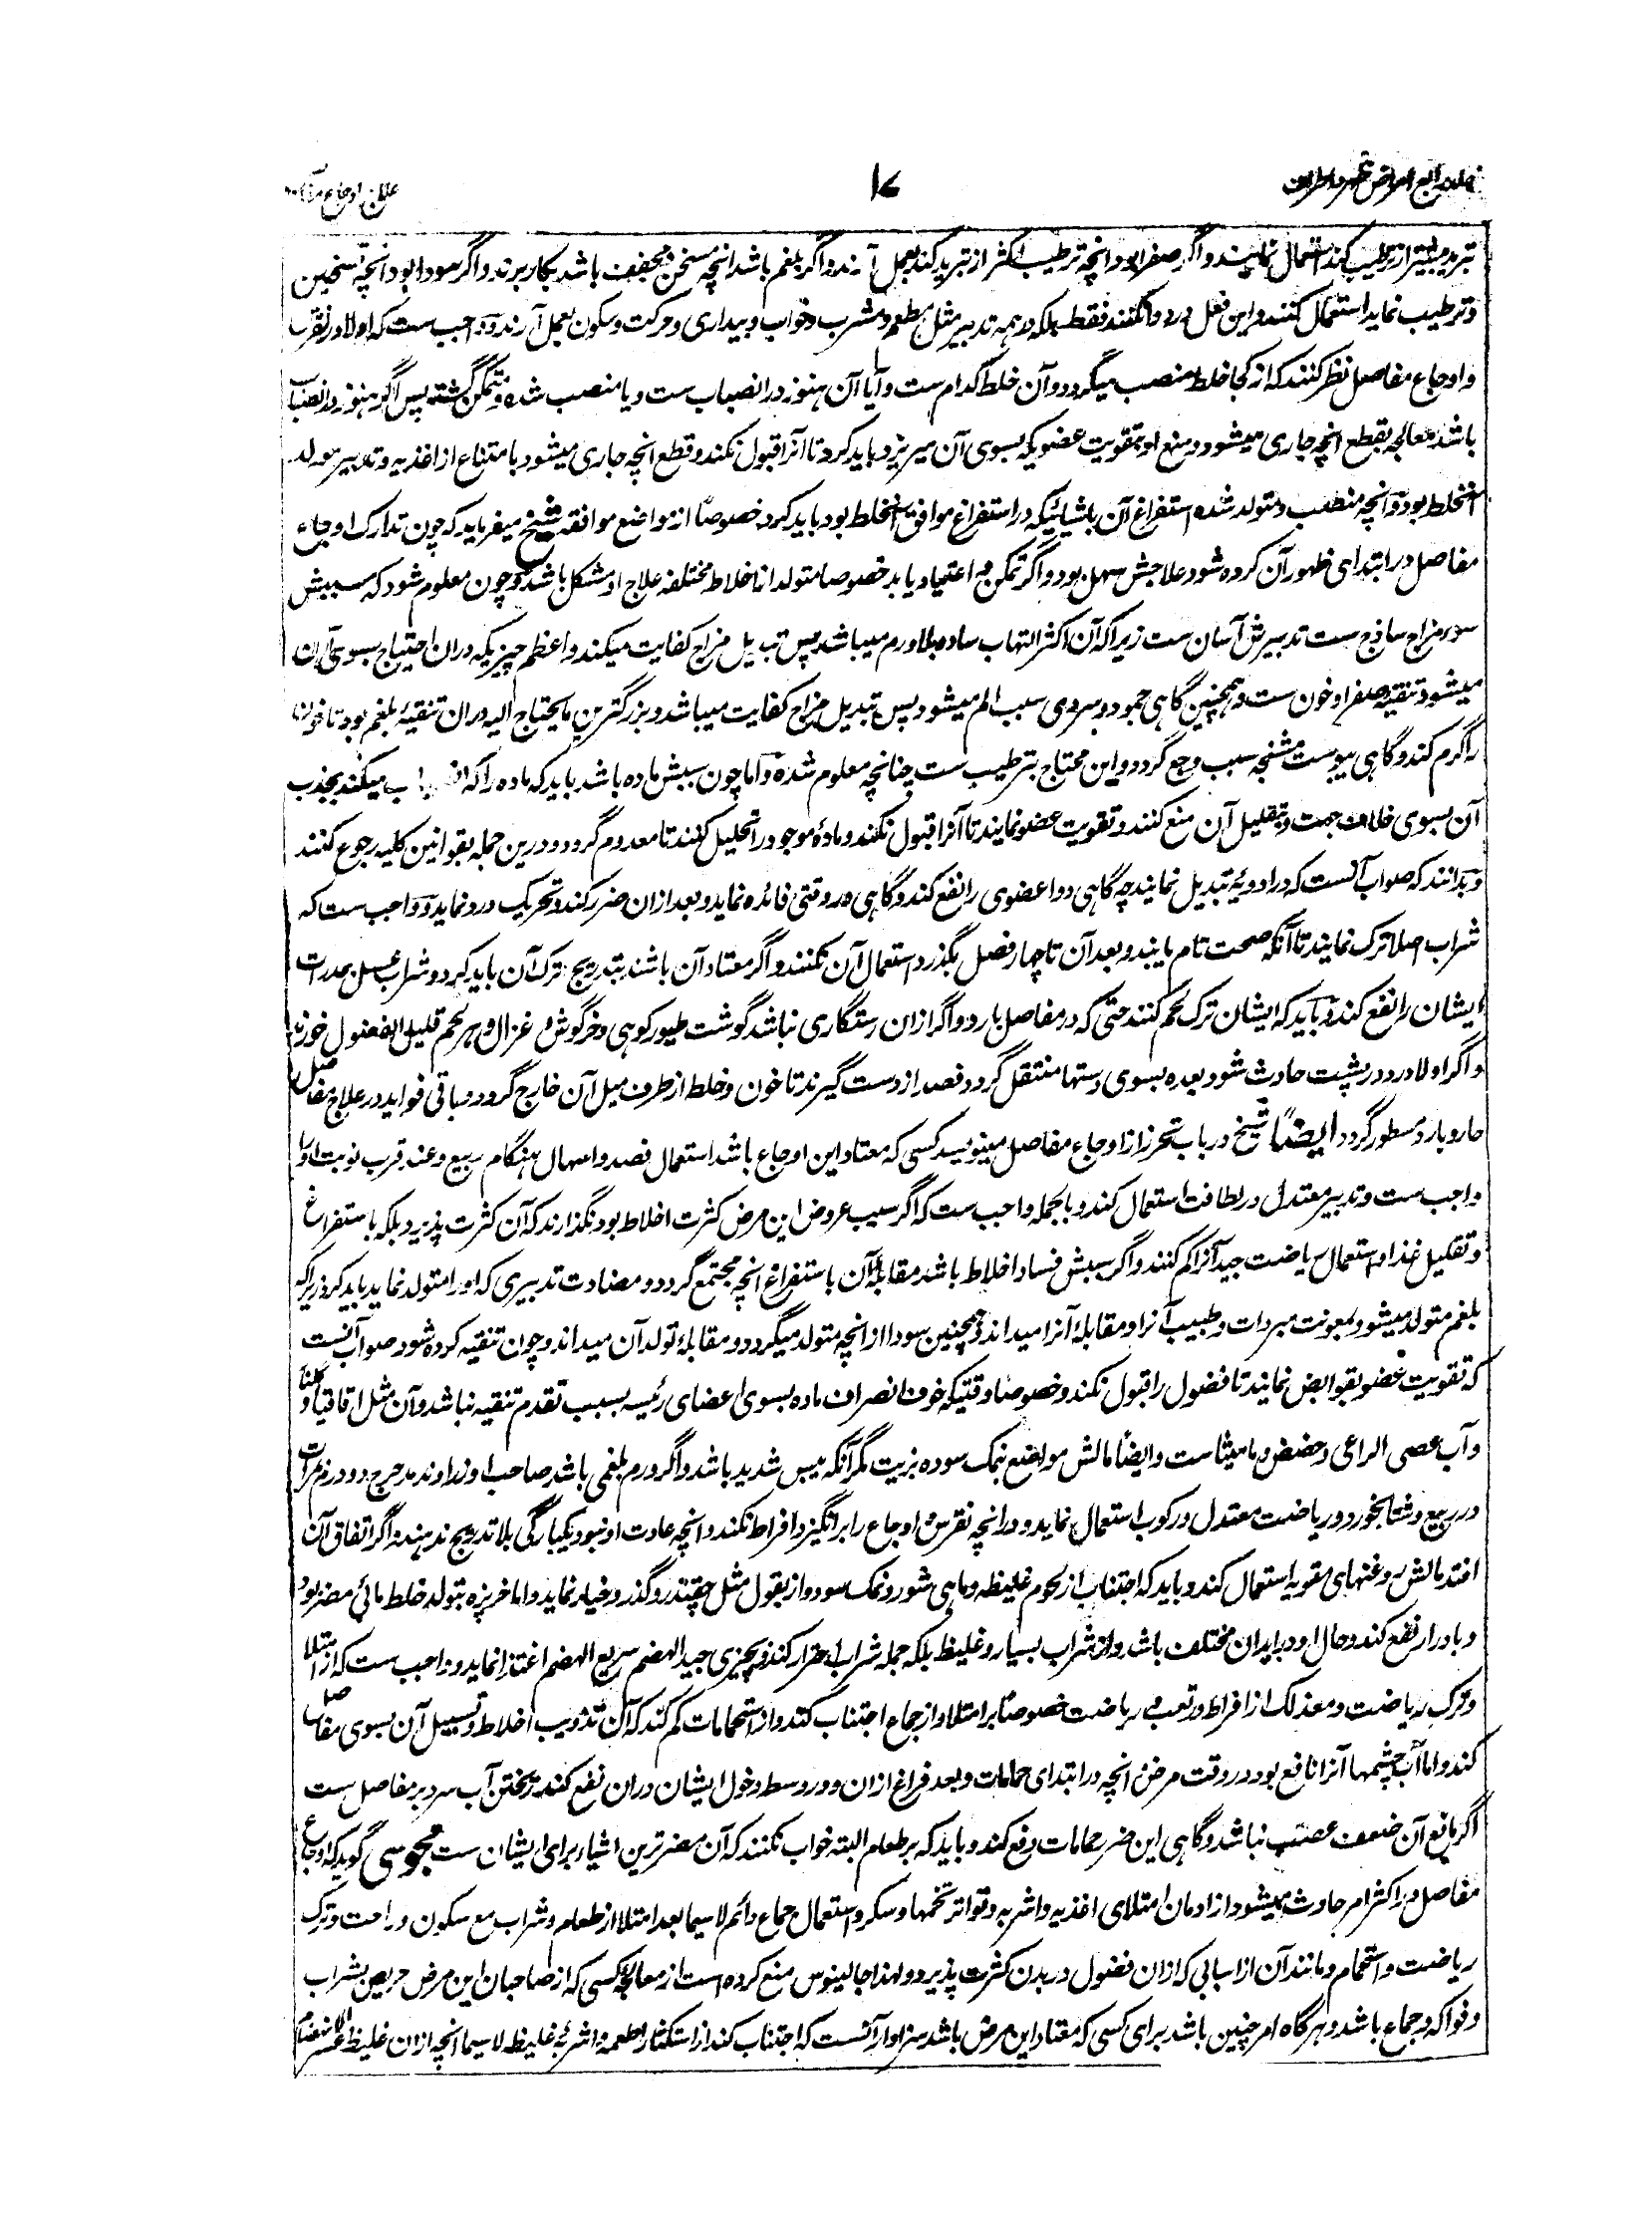 جلد رابع امراض ظهر و اطراف
۱۷
علاج اوجاع مفاصل
تبرید بیشتر از ترطیب کند استعمال نمایند و اگر صفرا بود و انچه ترطیب اکثر از تبرید کند بعمل آرند و اگر بلغم باشد انچه مسخن و مجفف باشد بکار برند و اگر سودا بود انچه تسخین
و ترطیب نماید استعمال کنند و این فعل در دوا نکنند فقط بلکه در همه تدبیر مثل مطعم و مشرب و خواب و بیداری و حرکت و سکون بعمل آرند و واجب ست که اولا در نقرس
و اوجاع مفاصل نظر کنند که از کجا خلط منصب میگردد و آن خلط کدام ست و آیا آن هنوز در انصباب ست و یا منصب شده و متمکن گشته پس اگر هنوز در انصباب
باشد معالجه بقطع انچه جاری میشود و منع او بتقویت عضویکه بسوی آن میریزد باید کرد تا آنرا قبول نکند و قطع انچه جاری میشود بامتناع از اغذیه و تدبیر مولد
آنخلط بود و انچه منصب و متولد شده استفراغ آن باشیائیکه در استفراغ موافق آنخلط بود باید کرد خصوصاً از مواضع موافقه شیخ میفرماید که چون تدارک اوجاع
مفاصل در ابتدای ظهور آن کرده شود علاجش سهل بود و اگر تمکن و اعتیاد یابد خصوصا متولد از اخلاط مختلفه علاج او مشکل باشد و چون معلوم شود که سببش
سوء مزاج ساذج ست تدبیرش آسان ست زیرا که آن اکثر التهاب ساده بلا ورم میباشد پس تبدیل مزاج کفایت میکند و اعظم چیزیکه دران احتیاج بسوی آن
میشود تنقیه صفرا و خون ست و همچنین گاهی جمود و سردی سبب الم میشود پس تبدیل مزاج کفایت میباشد و بزرگترین ما یحتاج الیه دران تنقیۀ بلغم بود تا خون
را گرم کند و گاهی یبوست مشنجه سبب وجع گردد و این محتاج بترطیب ست چنانچه معلوم شده و اما چون سببش ماده باشد باید که ماده را که انصباب میکند بجذب
آن بسوی خلاف جهت و تقلیل آن منع کنند و تقویت عضو نمایند تا آنرا قبول نکند و مادۀ موجود را تحلیل کنند تا معدوم گردد و درین جمله بقوانین کلیه رجوع کنند
و بدانند که صواب آنست که در ادویه تبدیل نمایند چه گاهی دوا عضوی را نفع کند و گاهی در وقتی فائده نماید و بعد ازان ضرر کند و تحریک درد نماید و واجب ست که
شراب اصلا ترک نمایند تا آنکه صحت تام یابند و بعد آن تا چهار فصل بگذرد استعمال آن نکنند و اگر معتاد آن باشند بتدریج ترک آن باید کرد و شراب عسل بمدرات
ایشان را نفع کند و باید که ایشان ترک لحم کنند حتی که در مفاصل بارد و اگر ازان رستگاری نباشد گوشت طیور کوهی و خرگوش و غزال و هر لحم قلیل الفضول خورند
و اگر اولا درد در پشت حادث شود بعده بسوی دستها منتقل گردد فصد از دست گیرند تا خون و خلط از طرف میل آن خارج گردد و باقی فواید در علاج مفاصل
حار و بارد مسطور گردد ایضاً شیخ در باب تحرز از اوجاع مفاصل مینویسد کسی که معتاد این اوجاع باشد استعمال فصد و اسهال هنگام ربیع و عند قرب نوبت او را
واجب ست و تدبیر معتدل در لطافت استعمال کند و بالجمله واجب ست که اگر سبب عروض این مرض کثرت اخلاط بود نگذارند که آن کثرت پذیرد بلکه باستفراغ
و تقلیل غذا و استعمال ریاضت جید آنرا کم کنند و اگر سببش فساد اخلاط باشد مقابلۀ آن باستفراغ انچه مجتمع گردد و مضادت تدبیری که او را متولد نماید باید کرد زیرا که
بلغم متولد میشود بمعونت مبردات و طبیب آنرا و مقابلۀ آنرا میداند و همچنین سودا از انچه متولد میگردد و مقابلۀ تولد آن میداند و چون تنقیه کرده شود صواب آنست
که تقویت عضو بقوابض نمایند تا فضول را قبول نکند و خصوصا وقتیکه خوف انصراف ماده بسوی اعضای رئیسه بسبب تقدم تنقیه نباشد و آن مثل اقاقیا و گلنار
و آب عصی الراعی و حضض و مامیثا ست و ایضاً مالش مواضع بنمک سوده بزیت مگر آنکه یبس شدید باشد و اگر ورم بلغمی باشد صاحب او زراوند مدحرج دو درم مرات
در ربیع و شتا بخورد و ریاضت معتدل و رکوب استعمال نماید و در انچه نقرس و اوجاع را برانگیزد افراط نکند و انچه عادت او نبود یکبارگی بلا تدریج ندهند و اگر اتفاق آن
افتد مالش روغنهای مقویه استعمال کند و باید که اجتناب از لحوم غلیظه و ماهی شور و نمک سود و از بقول مثل چقندر و گذر و خیار نماید و اما خربزه بتولد خلط مائی مضر بود
و بادرار نفع کند و حال او در ابدان مختلف باشد و از شراب بسیار و غلیظ بلکه جمله شراب احتراز کند و بچیزی جید الهضم سریع الهضم اغتذا نماید و واجب ست که از امتلا
و ترک ریاضت و معذلک از افراط در تعب و ریاضت خصوصاً بر امتلا و از جماع اجتناب کند و از استحمامات کم کند که آن تذویب اخلاط و تسییل آن بسوی مفاصل
کند و اما آب چشمها آنرا نافع بود در وقت مرض و انچه در ابتدای حمامات و بعد فراغ ازان و در وسط دخول ایشان دران نفع کند ریختن آب سرد بر مفاصل ست
اگر مانع آن ضعف عصب نباشد و گاهی این ضرر حمامات رفع کند و باید که بر طعام البته خواب نکنند که آن مضرترین اشیا برای ایشان ست مجوسی گوید که اوجاع
مفاصل در اکثر امر حادث میشود از ادمان امتلای اغذیه و اشربه و تواتر تخمها و سکر و استعمال جماع دائم لا سیما بعد امتلا از طعام و شراب مع سکون و راحت و ترک
ریاضت و استحمام و مانند آن از اسبابی که ازان فضول در بدن کثرت پذیرد و لهذا جالینوس منع کرده است از معالجه کسی که از صاحبان این مرض حریص بشراب
و فواکه و جماع باشد و هرگاه امر چنین باشد برای کسی که معتاد این مرض باشد سزاوار آنست که اجتناب کند از استکثار اطعمه و اشربۀ غلیظه لا سیما انچه ازان غلیظ عسر الانهضام